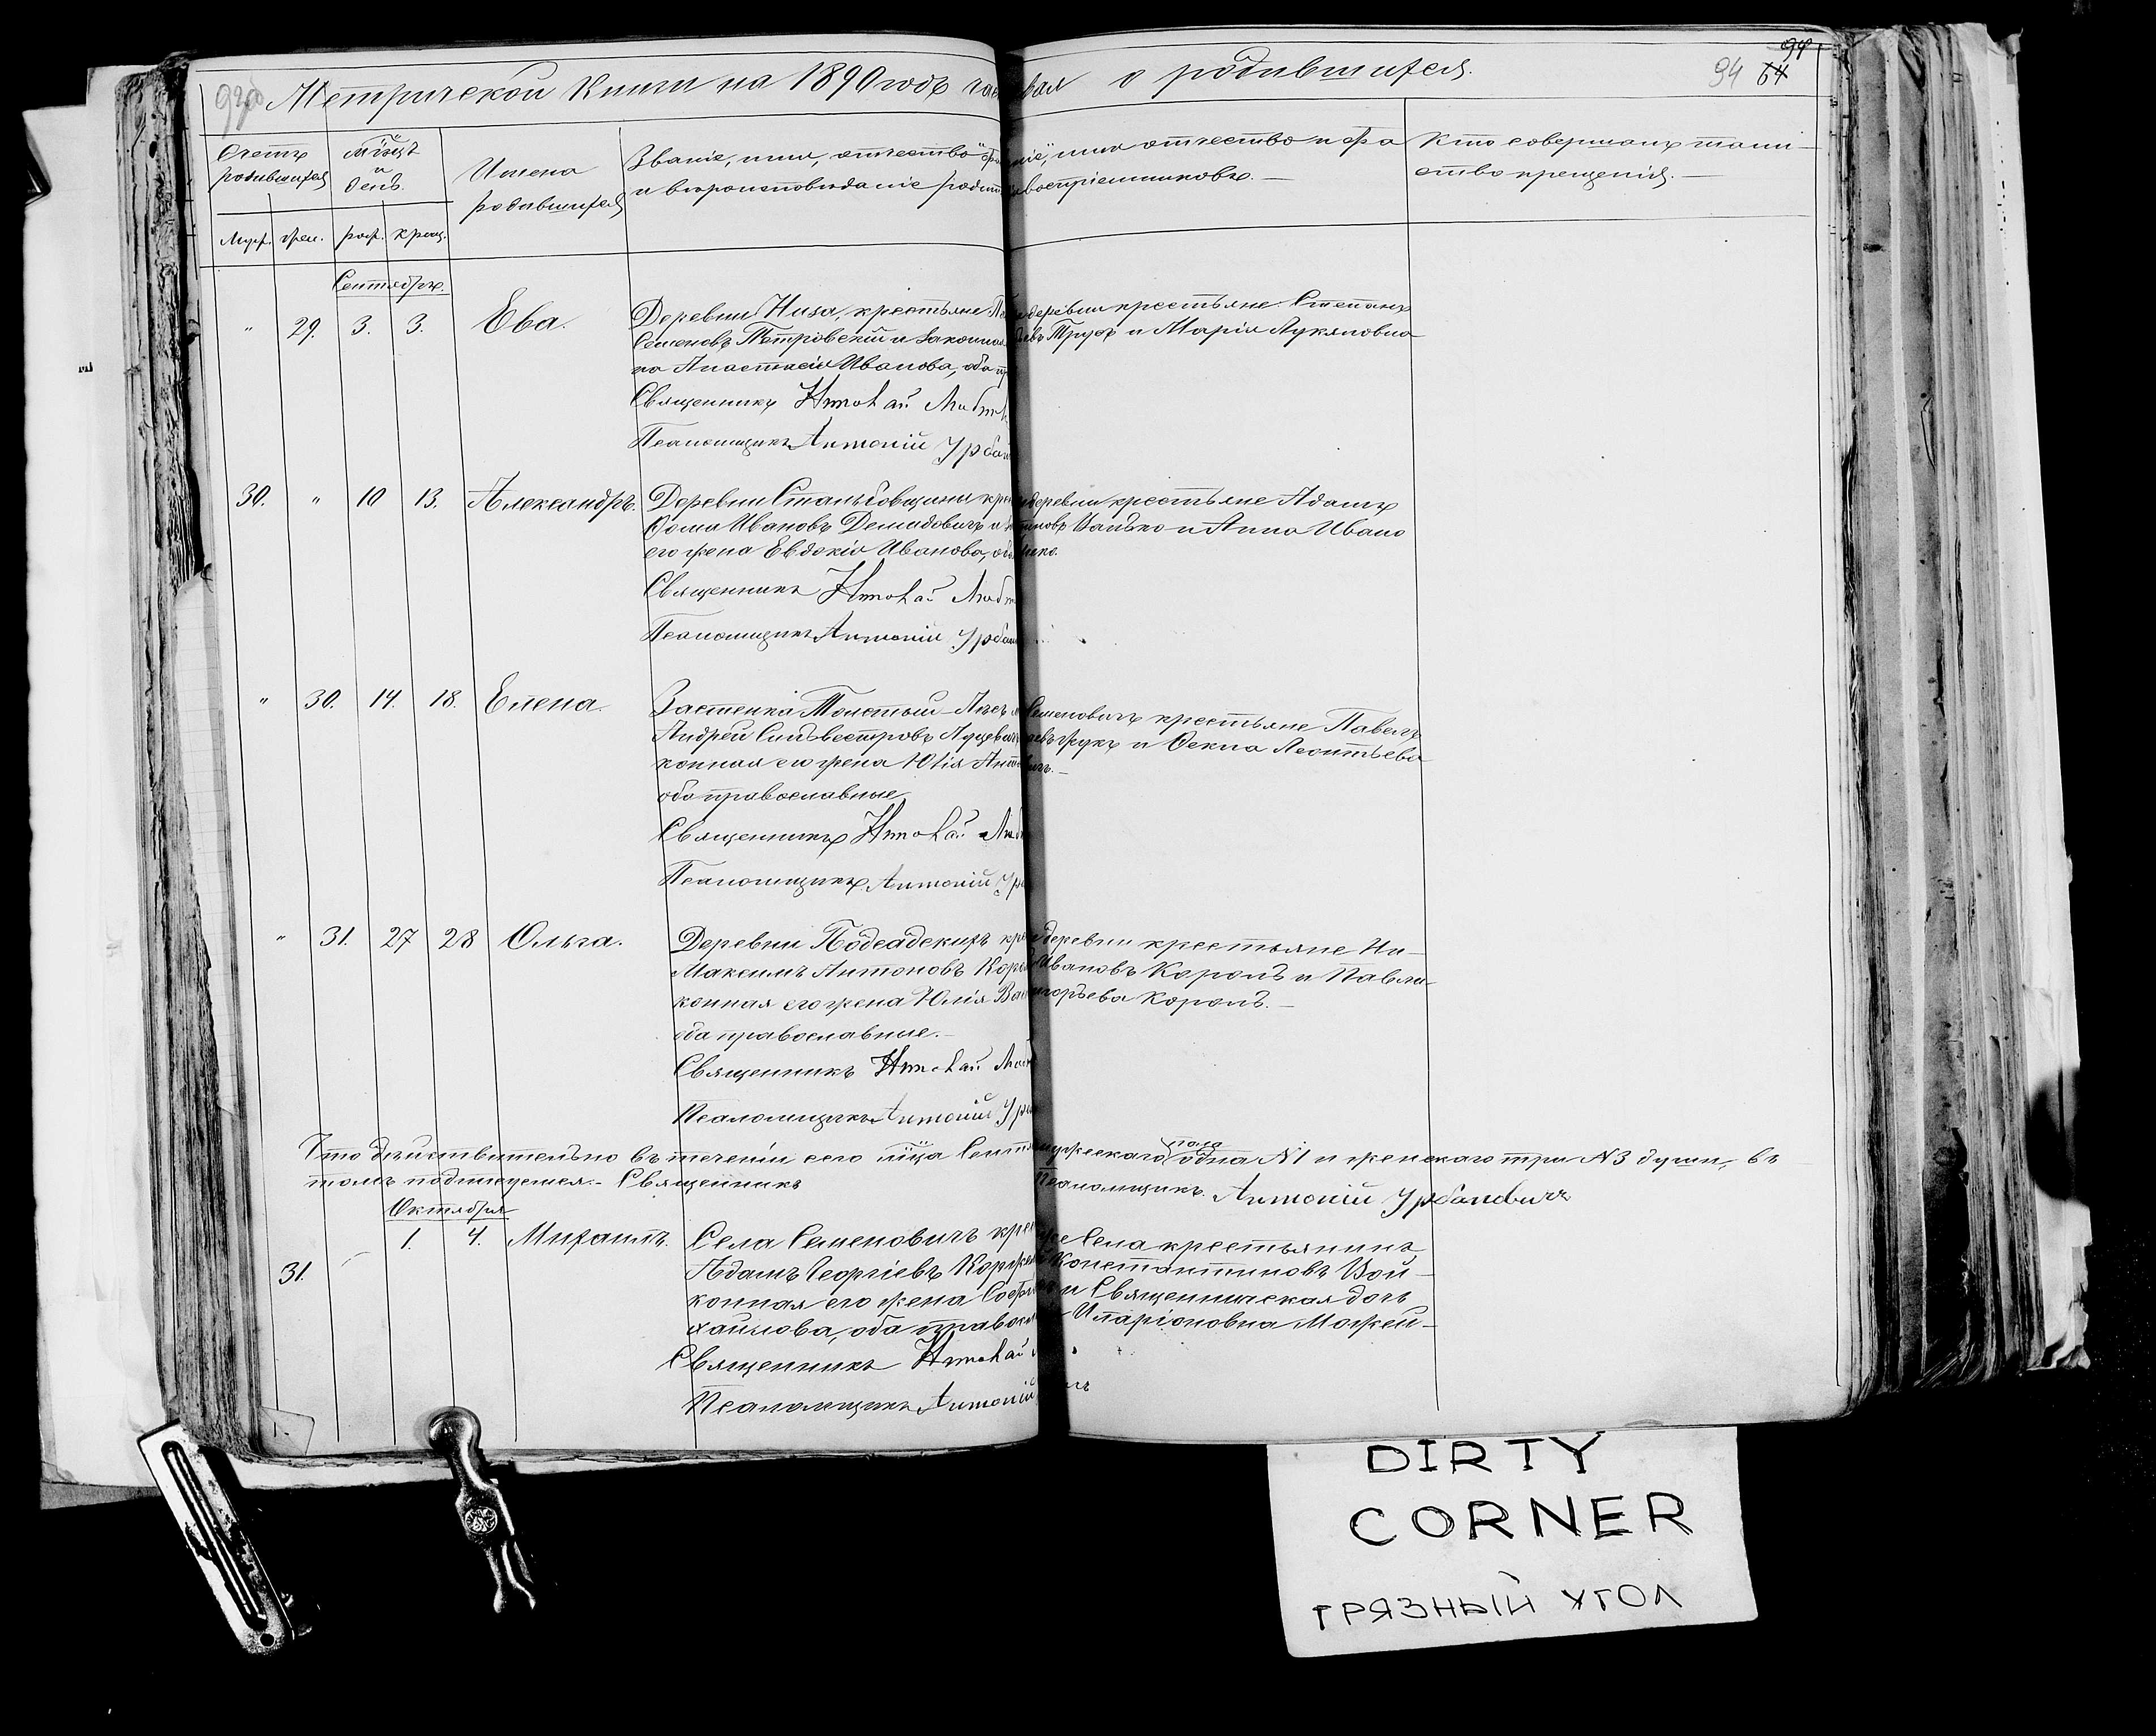 Метрической Книги на 1890 годъ час
вая о родившихся.
94 64
94
Счетъ родившихся
Мѣсяцъ и день.
Имена родившихся
Званіе, имя, отчество
и вѣроисповѣданіе родит
ніе, имя отчество и фа
воспріемниковъ. —
Кто совершалъ таин-
ство крещенія. —
Муж. Жен. рож. крещ.
Сентябрь.
" 29. 3. 3. Ева.
Деревни Низа, крестьяне
Семеновъ Петровскій и законная
на Анастасія Иванова, оба пр
Священникъ Николай
Псаломщикъ Антоній Урбан
деревни крестьяне Степанъ
Трусъ и Марія Лукяновна
30. " 10 13. Александръ.
Деревни кре
Ѳома Ивановъ Демидовичъ и
его жена Евдокія Иванова, оба
Священникъ Николай
Псаломщикъ Антоній Урбан
деревни крестьяне Адамъ
и Анна Ивано
" 30. 14. 18. Елена.
Застѣнка Толстый-Лѣсъ
Андрей Сильвестровъ Луцевич
конная его жена Юлія Анто
оба православные
Священникъ Николай
Псаломщикъ Антоній Ур
Семеновичъ крестьяне Павелъ
и Ѳекла Леонтьева
" 31. 27 28 Ольга.
Деревни Подсадскихъ кре
Максимъ Антоновъ Коро
конная его жена Юлія
оба православные. —
Священникъ Николай
Псаломщикъ Антоній Ур
деревни крестьяне Ни-
Ивановъ Король и Павли-
горьева Король. —
Что дѣйствительно въ теченіи сего мѣсяца Сентя
мужескаго пола одна N1 и женскаго три N3 души, въ
томъ подписуемся. - Священникъ
Псаломщикъ. Антоній Урбановичъ
Октября
31. 1. 4. Михаилъ.
Села Семеновичъ кре
Адамъ Георгіевъ Корже
конная его жена Соф
хаилова, оба правосл
Священникъ Николай
Псаломщикъ Антоній
же Села крестьянинъ
Константиновъ Вой-
и Священническая дочь
Иларіоновна Можей-
DIRTY
CORNER
ГРЯЗНЫЙ УГОЛ